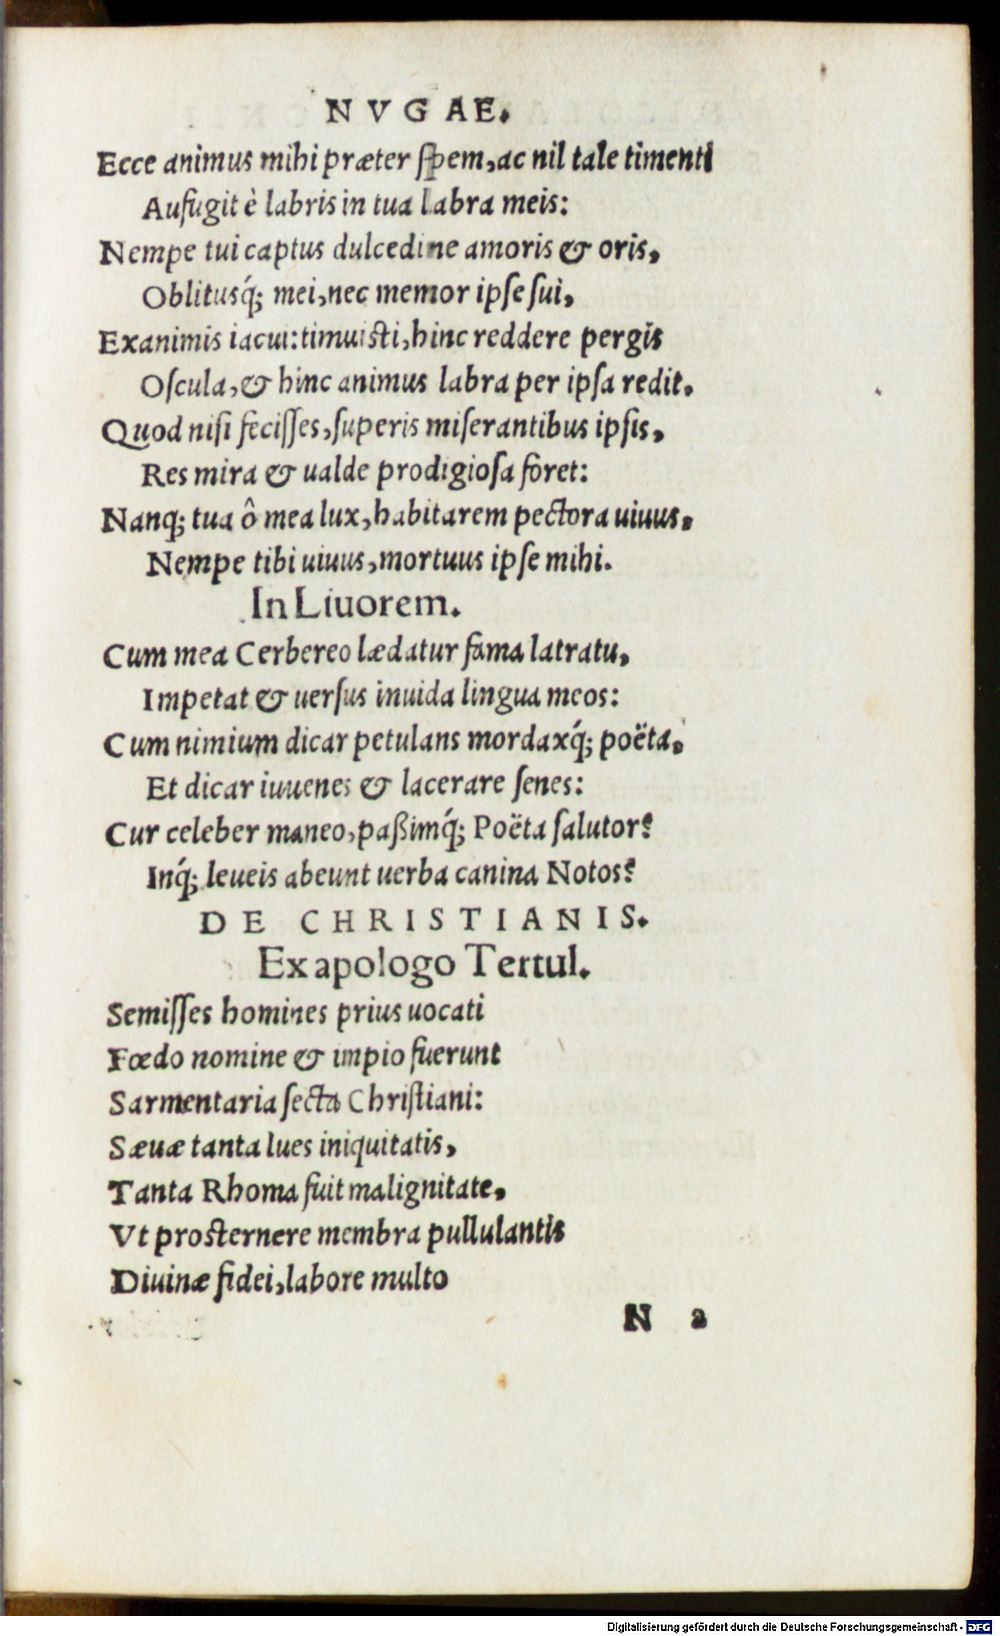 NVGAE.
Ecce animus mihi præter ſpem, ac nil tale timenti
Aufugit è labris in tua labra meis:
Nempe tui captus dulcedine amoris & oris,
Oblitusq́; mei, nec memor ipſe ſui,
Exanimis iacui: timuiſti, hinc reddere pergis
Oſcula, & hinc animus labra per ipſa redit.
Quod niſi feciſſes, ſuperis miſerantibus ipſis,
Res mira & ualde prodigioſa foret:
Nanq; tua ô mea lux, habitarem pectora uiuus.
Nempe tibi uiuus, mortuus ipſe mihi.
In Liuorem.
Cum mea Cerbereo lædatur fama latratu,
Impetat & uerſus inuida lingua meos:
Cum nimium dicar petulans mordaxq́; poëta.
Et dicar iuuenes & lacerare ſenes:
Cur celeber maneo, paßimq́; Poëta ſalutor?
Inq́; leueis abeunt uerba canina Notos?
DE CHRISTIANIS.
Ex apologo Tertul.
Semiſſes homines prius uocati
Fœdo nomine & impio fuerunt
Sarmentaria ſecta Chriſtiani:
Sæuæ tanta lues iniquitatis,
Tanta Rhoma fuit malignitate,
Vt proſternere membra pullulantis
Diuinæ fidei, labore multo
N 2
Digitalisierung gefördert durch die Deutsche Forschungsgemeinschaft - DFG